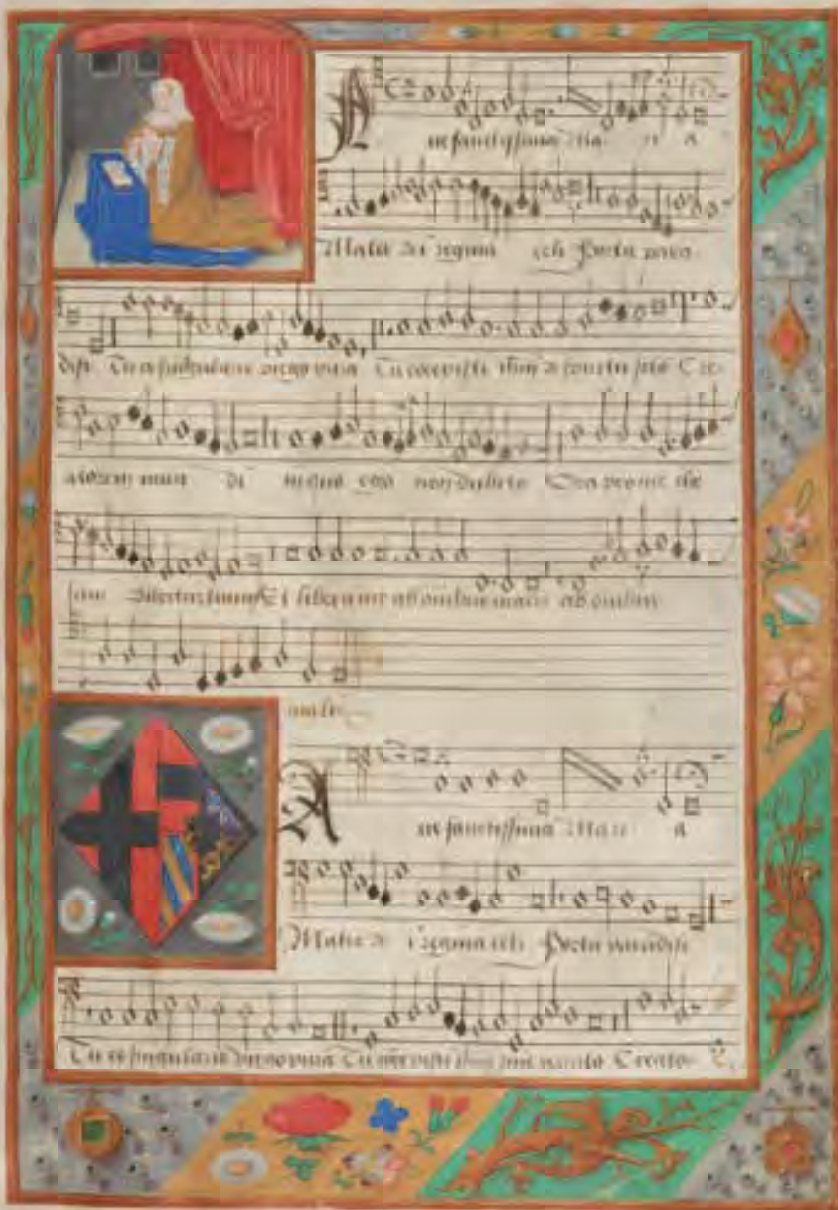 Ave sanctissima Maria
Mater dei regina celi Porta para-
disi Tu es singularis virgo pura Tu concepisti ihm de spiritu Cre-
atorem mundi in quo ego non dubito Ora pro me
Et libera me ab omnibus malis ab omnibus
malis
Ave sanctissima Maria
Mater dei regina celi Porta paradisi
Tu es singularis virgo pura Tu concepisti ihm Creato-